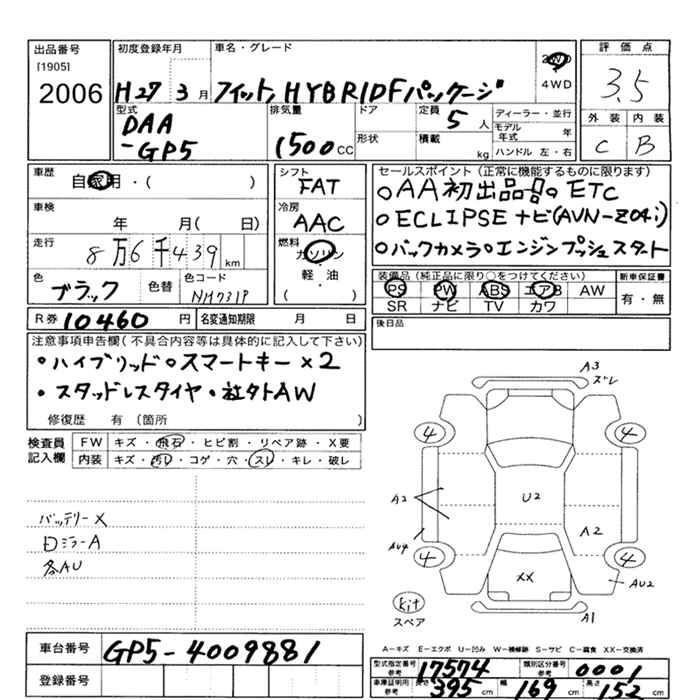 出品番号
[1905]
2006
初度登録年月
H27 3月
車名・グレード
フィット HYBRID Fパッケージ
2WD
4WD
評価点
3.5
外装 内装
C B
型式
DAA
-GP5
排気量
1500cc
ドア
形状
定員
5人
積載
kg
ディーラー・並行
モデル年式 年
ハンドル 左・右
車歴
自家用・( )
車検
年 月( 日)
走行
8万6千439km
色
ブラック
色替
色コード
NH731P
シフト
FAT
冷房
AAC
燃料
ガソリン
軽・油
( )
セールスポイント(正常に機能するものに限ります)
○AA初出品号○ETC
○ECLIPSEナビ(AVN-Z04i)
○バックカメラ○エンジンプッシュスタート
装備品(純正品に限り○をつけてください)
PS PW ABS エアB AW
SR ナビ TV カワ
新車保証書
有・無
R券 10460円
名変通知期限 月 日
後日品
注意事項申告欄(不具合内容等は具体的に記入して下さい)
・ハイブリッド○スマートキー×2
・スタッドレスタイヤ・社外AW
修復歴 有 〔箇所
検査員記入欄
FW キズ・飛石・ヒビ割・リペア跡・X要
内装 キズ・汚レ・コゲ・穴・スレ・キレ・破レ
バッテリーX
Dミラー A
各AU
A3
ズレ
4 4
A2
U2
A2
AU4
4 4
XX
AU2
kit
スペア
A1
A-キズ E-エクボ U-凹み W-補修跡 S-サビ C-腐食 XX-交換済
車台番号
GP5-4009881
登録番号
型式指定番号 参考
17574
類別区分番号 参考
0001
車庫証明用 参考
長さ 395cm 幅 169cm 高さ 152cm